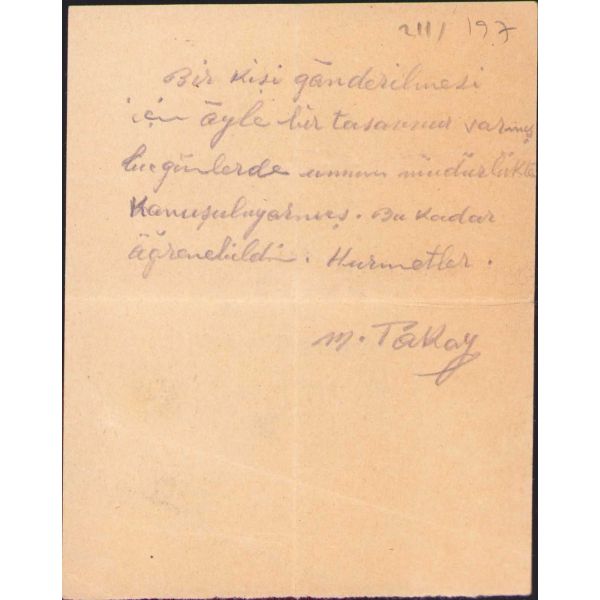 211/ 197
Bir kişi gönderilmesi
için öyle bir tasavvur varmış
bugünlerde umum müdürlükte
Konuşuluyormuş. Bu kadar
öğrenebildim. Hürmetler.
M. Tokay